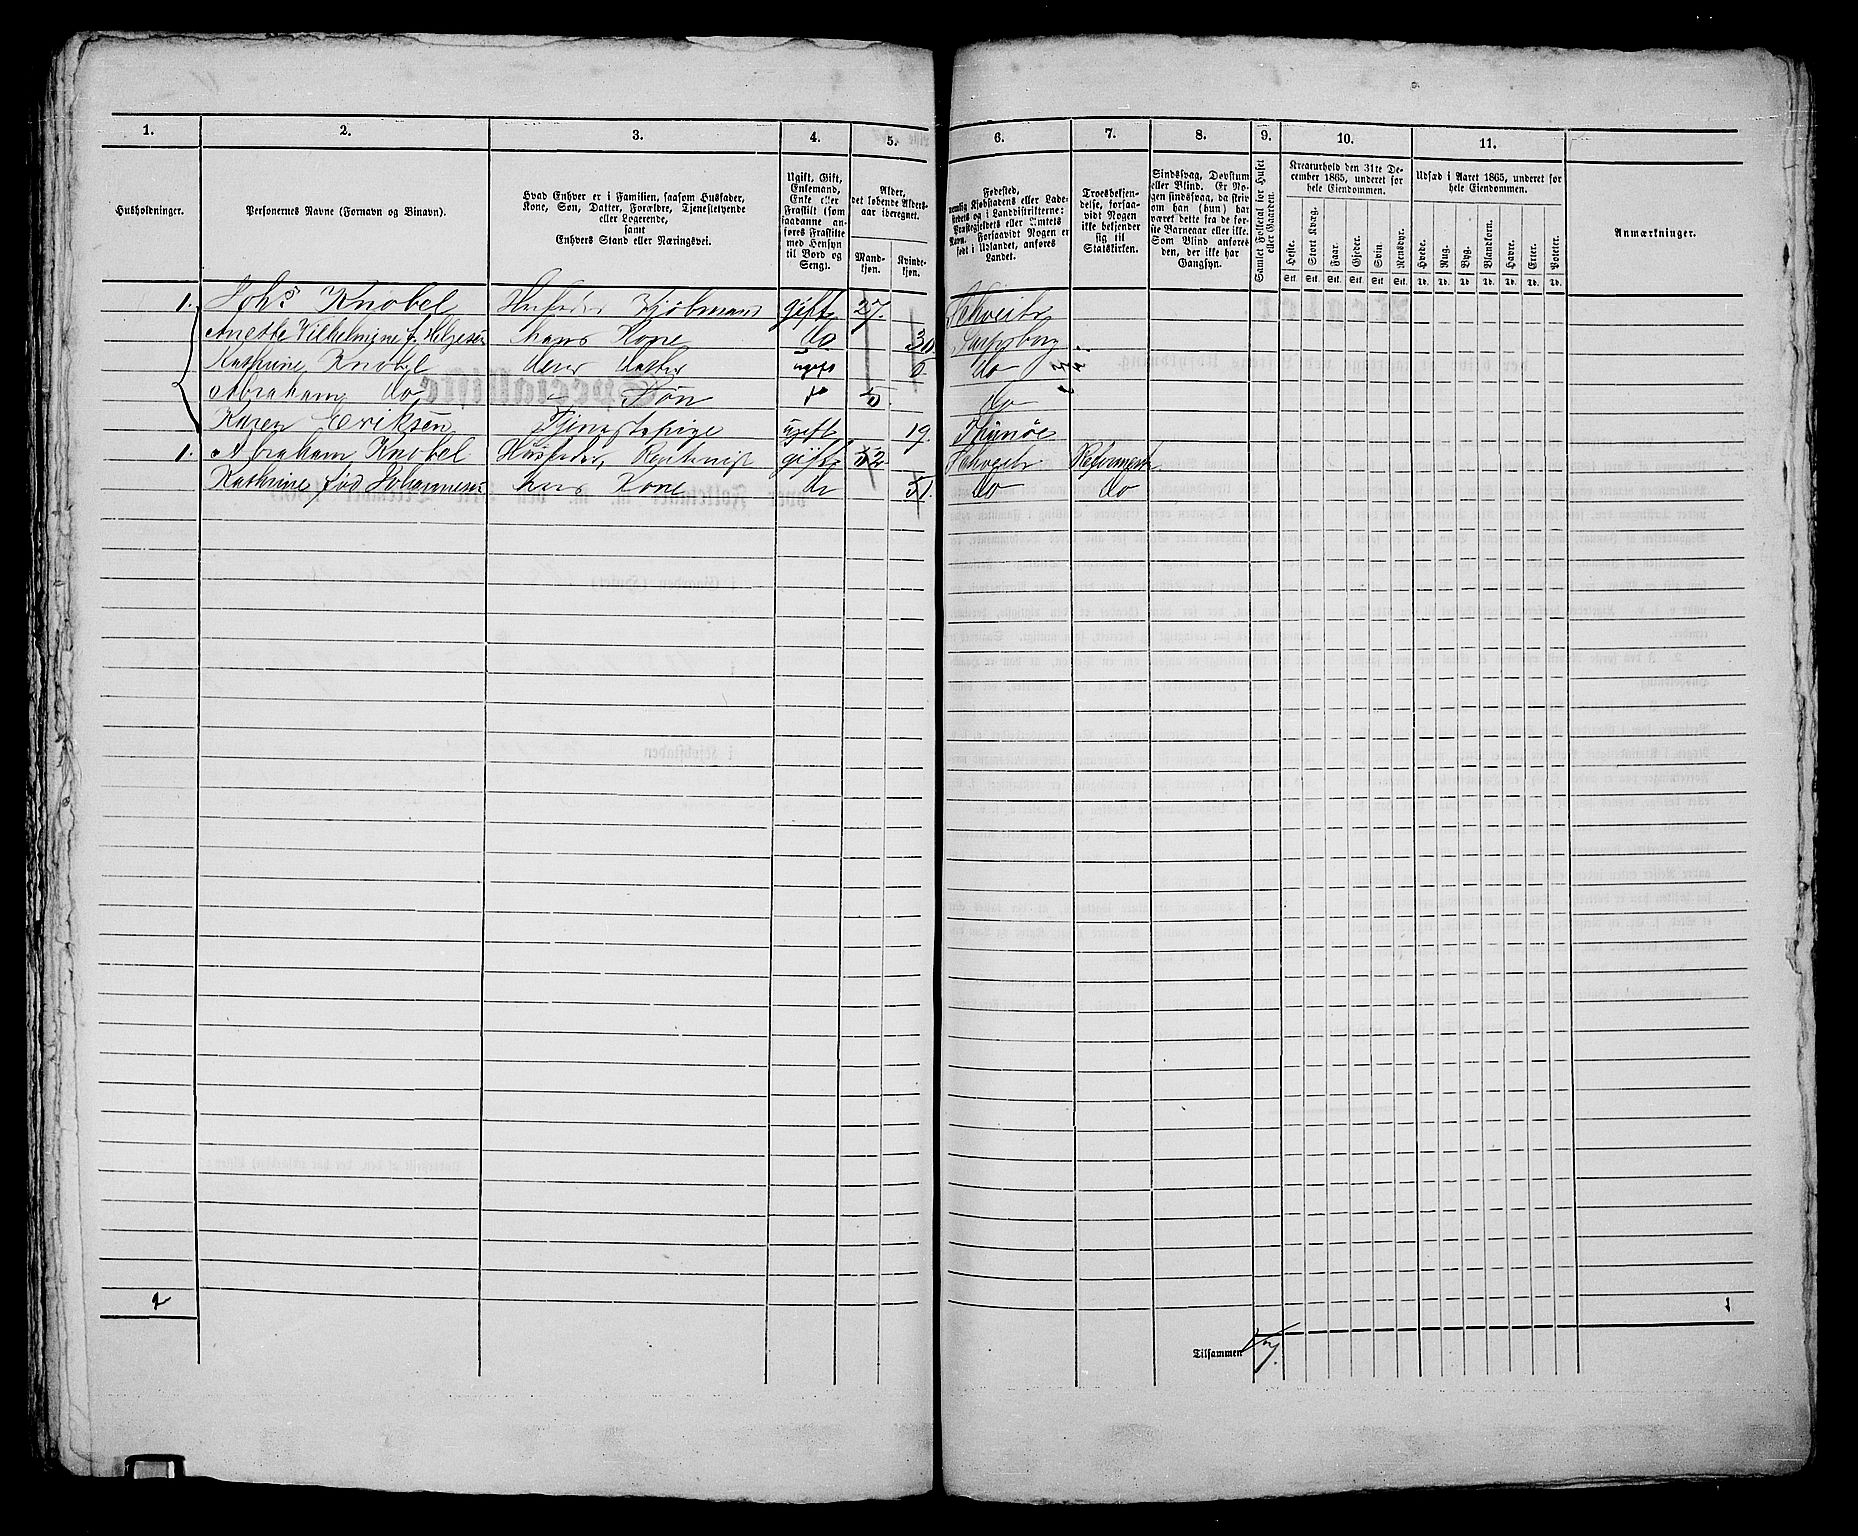 1. 2. 3. 4. 5. 6. 7. 8. 9. 10. 11.
Husholdninger.
Personernes Navne (Fornavn og Binavn).
Hvad Enhver er i Familien, saasom Husfader,
Kone, Søn, Datter, Forældre, Tjenestetyende
eller Logerende,
samt
Enhvers Stand eller Næringsvei.
Ugift, Gift,
Enkemand,
Enke eller
Fraskilt (som
saadanne an-
føres Fraskilte
med Hensyn
til Bord og
Seng).
Alder,
det løbende Alders-
aar iberegnet.
Mand-
kjøn.
Kvinde-
kjøn.
Fødested,
nemlig Kjøbstadens eller Lade-
stedets og i Landdistrikterne:
Præstegjeldets eller Amtets
Navn. Forsaavidt Nogen er
født i Udlandet, anføres
Landet.
Troesbekjen-
delse, forsaa-
vidt Nogen
ikke bekjender
sig til
Statskirken.
Sindssvag, Døvstum
eller Blind. Er No-
gen sindssvag, da skriv
om han (hun) har
været dette fra de før-
ste Barneaar eller ikke.
Som Blind anføres
den, der ikke har
Gangsyn.
Samlet Folketal for Huset
eller Gaarden.
Kreaturhold den 31te De-
cember 1865, underet for
hele Eiendommen.
Heste. Stort Kvæg. Faar. Gjeder. Svin. Rensdyr.
Stk. Stk. Stk. Stk. Stk. Stk.
Udsæd i Aaret 1865, underet for
hele Eiendommen.
Hvede. Rug. Byg. Blandkorn. Havre. Erter. Poteter.
Td. Td. Td. Td. Td. Td. Td.
Anmærkninger.
1. Johs Knobel Husfader Kjøbmand gift 27. Schveits
Anette Vilhelmine f. Helgesen hans Kone do 30 Sarpsborg
Kathrine Knobel deres datter ugift 6 do
Abraham do Søn do 5 do
Karen Eriksen Tjenestepige ugift 19.
1. Abraham Knobel Husfader, Rentenist gift 52. Schveits Reformert
Kathrine fød Johannesen hans Kone do 51. do do
2
Tilsammen 7.
1